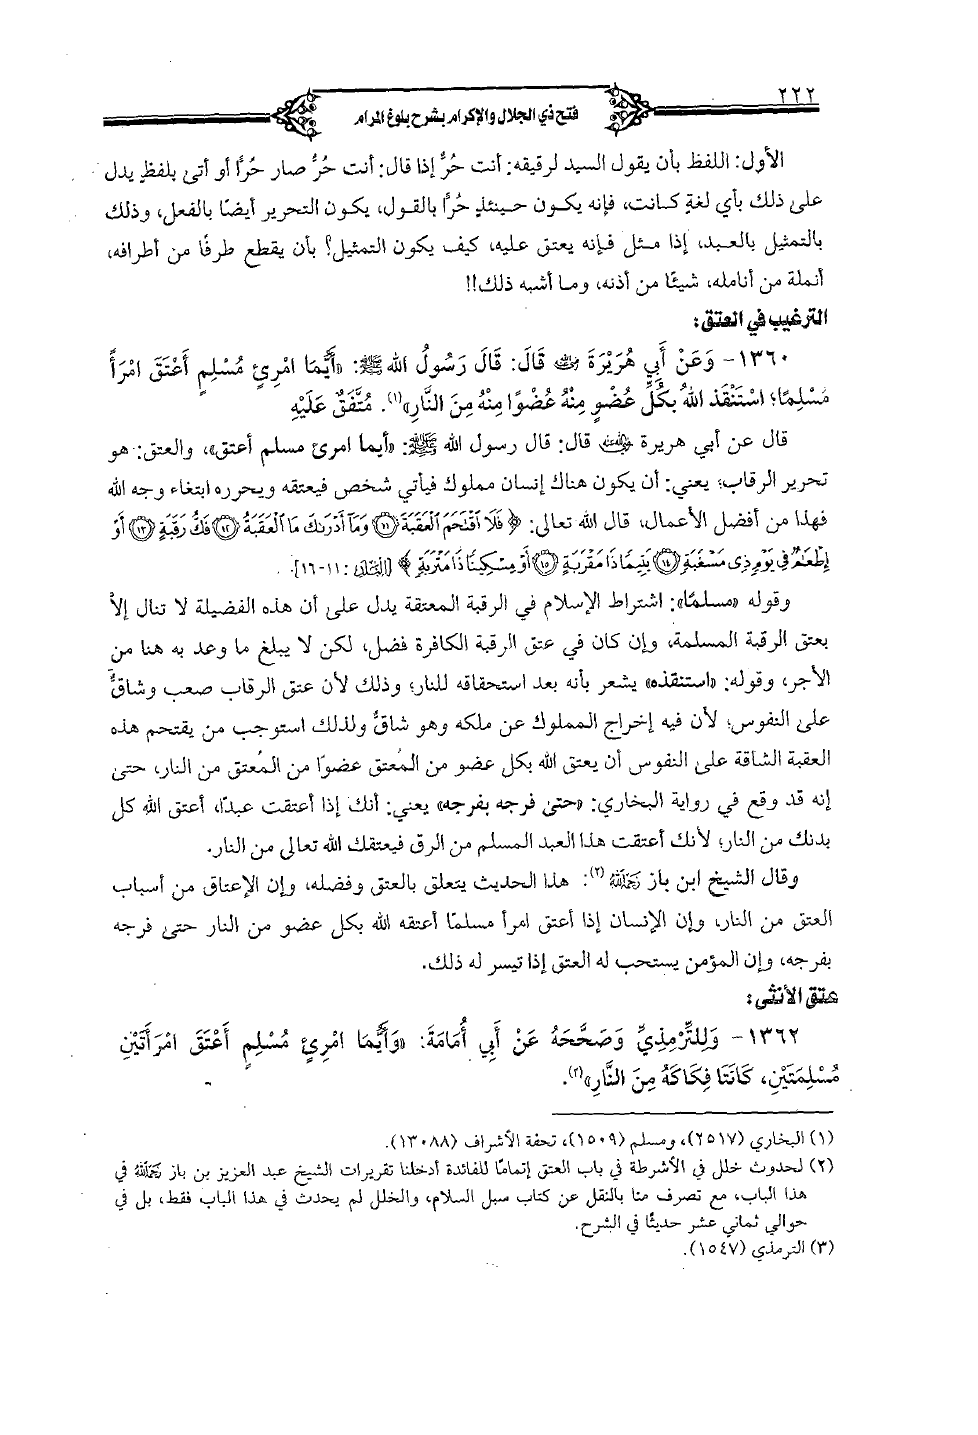 ٢٢٢
فتح ذي الجلال والإكرام بشرح بلوغ المرام
الأول: اللفظ بأن يقول السيد لرقيقه: أنت حُرٌّ إذا قال: أنت حُرٌّ صار حُرًّا أو أتىٰ بلفظٍ يدل
علىٰ ذلك بأي لغةٍ كانت، فإنه يكون حينئذٍ حُرًّا بالقول، يكون التحرير أيضًا بالفعل، وذلك
بالتمثيل بالعبد، إذا مثل فإنه يعتق عليه، كيف يكون التمثيل؟ بأن يقطع طرفًا من أطرافه،
أنملة من أنامله، شيئًا من أذنه، وما أشبه ذلك!!
الترغيب في العتق:
١٣٦٠- وَعَنْ أَبِي هُرَيْرَةَ رضي الله عنه قَالَ: قَالَ رَسُولُ اللهِ ﷺ: «أَيُّمَا امْرِئٍ مُسْلِمٍ أَعْتَقَ امْرَأً
مُسْلِمًا؛ اسْتَنْقَذَ اللهُ بِكُلِّ عُضْوٍ مِنْهُ عُضْوًا مِنْهُ مِنَ النَّارِ»(١). مُتَّفَقٌ عَلَيْهِ
قال عن أبي هريرة رضي الله عنه قال: قال رسول الله ﷺ: «أيما امرئ مسلم أعتق»، والعتق: هو
تحرير الرقاب؛ يعني: أن يكون هناك إنسان مملوك فيأتي شخص فيعتقه ويحرره ابتغاء وجه الله
فهذا من أفضل الأعمال، قال الله تعالى: ﴿فَلَا اقْتَحَمَ الْعَقَبَةَ ۝١١ وَمَا أَدْرَىٰكَ مَا الْعَقَبَةُ ۝١٢ فَكُّ رَقَبَةٍ ۝١٣ أَوْ
إِطْعَامٌ فِي يَوْمٍ ذِي مَسْغَبَةٍ ۝١٤ يَتِيمًا ذَا مَقْرَبَةٍ ۝١٥ أَوْ مِسْكِينًا ذَا مَتْرَبَةٍ﴾ [البلد: ١١-١٦].
وقوله «مسلمًا»: اشتراط الإسلام في الرقبة المعتقة يدل على أن هذه الفضيلة لا تنال إلا
بعتق الرقبة المسلمة، وإن كان في عتق الرقبة الكافرة فضل، لكن لا يبلغ ما وعد به هنا من
الأجر، وقوله: «استنقذه» يشعر بأنه بعد استحقاقه للنار؛ وذلك لأن عتق الرقاب صعب وشاقٌّ
على النفوس؛ لأن فيه إخراج المملوك عن ملكه وهو شاقٌّ ولذلك استوجب من يقتحم هذه
العقبة الشاقة على النفوس أن يعتق الله بكل عضو من المُعتق عضوًا من المُعتق من النار، حتىٰ
إنه قد وقع في رواية البخاري: «حتىٰ فرجه بفرجه» يعني: أنك إذا أعتقت عبدًا، أعتق الله كل
بدنك من النار؛ لأنك أعتقت هذا العبد المسلم من الرق فيعتقك الله تعالى من النار.
وقال الشيخ ابن باز رحمه الله(٢): هذا الحديث يتعلق بالعتق وفضله، وإن الإعتاق من أسباب
العتق من النار، وإن الإنسان إذا أعتق امرأ مسلمًا أعتقه الله بكل عضو من النار حتىٰ فرجه
بفرجه، وإن المؤمن يستحب له العتق إذا تيسر له ذلك.
عتق الأنثى:
١٣٦٢- وَلِلتِّرْمِذِيِّ وَصَحَّحَهُ عَنْ أَبِي أُمَامَةَ: «وَأَيُّمَا امْرِئٍ مُسْلِمٍ أَعْتَقَ امْرَأَتَيْنِ
مُسْلِمَتَيْنِ، كَانَتَا فِكَاكَهُ مِنَ النَّارِ»(٣).
(١) البخاري (٢٥١٧)، ومسلم (١٥٠٩)، تحفة الأشراف (١٣٠٨٨).
(٢) لحدوث خلل في الأشرطة في باب العتق إتمامًا للفائدة أدخلنا تقريرات الشيخ عبد العزيز بن باز رحمه الله في
هذا الباب، مع تصرف منا بالنقل عن كتاب سبل السلام، والخلل لم يحدث في هذا الباب فقط، بل في
حوالي ثماني عشر حديثًا في الشرح.
(٣) الترمذي (١٥٤٧).